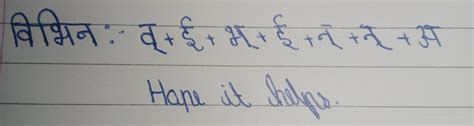 विभिन :- व् + ई + भ् + ई + न् + न् + अ
Hope it helps.